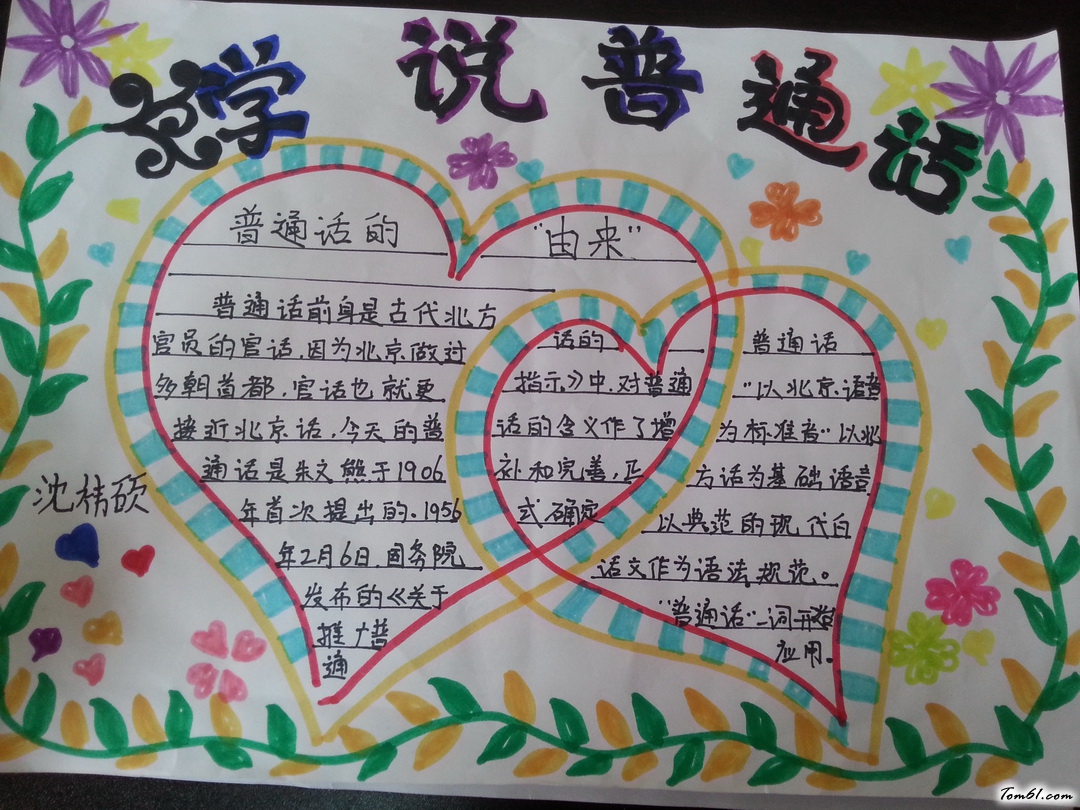 学说普通话
普通话的"由来"
普通话前身是古代北方
官员的官话,因为北京做过
多朝首都,官话也就更
接近北京话,今天的普
通话是朱文熊于1906
年首次提出的.1956
年2月6日,国务院
发布的《关于
推广普
通
话的
指示》中,对普通
话的含义作了增
补和完善,正
式确定
普通话
"以北京语音
为标准音"以北
方话为基础语言
以典范的现代白
话文作为语法规范。
"普通话"一词开始
应用。
沈祎硕
Tom61.com